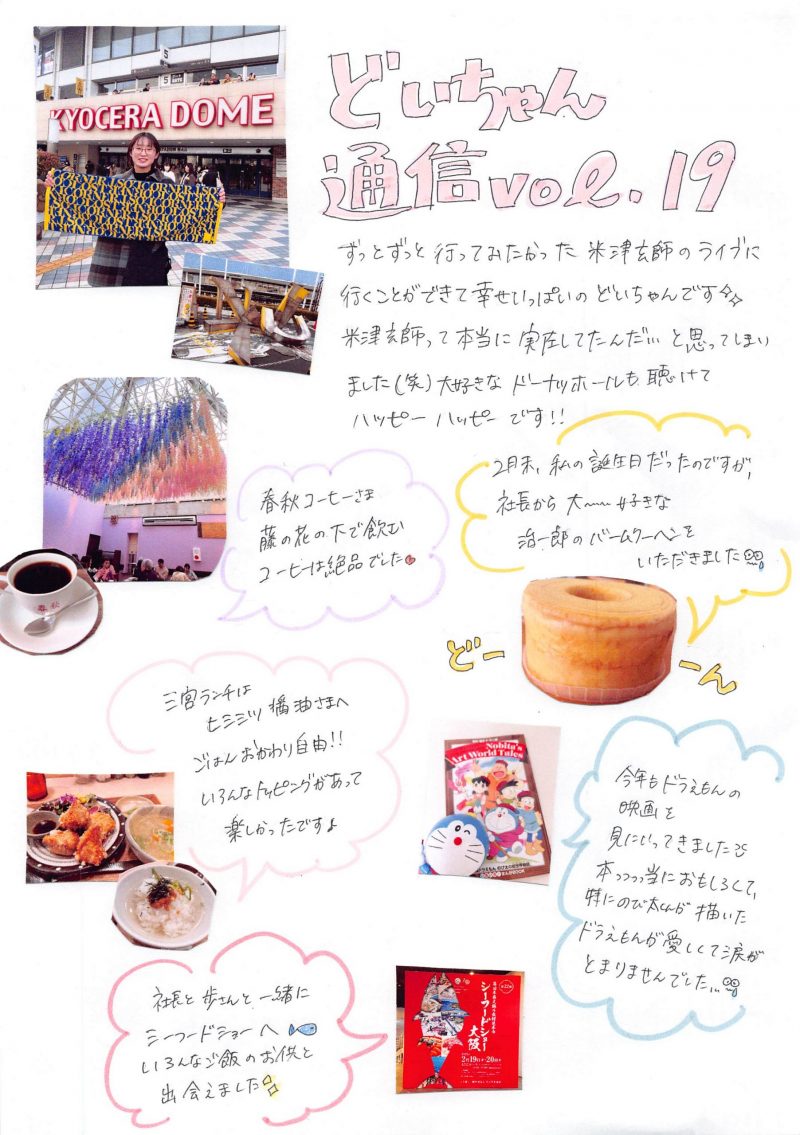 KYOCERA DOME
どいちゃん
通信 vol.19
ずっとずっと行ってみたかった 米津玄師のライブに
行くことができて幸せいっぱいの どいちゃんです
米津玄師って本当に実在してたんだ… と思ってしまい
ました(笑) 大好きな ドーナツホールも 聴けて
ハッピー ハッピー です!!
2月末、私の誕生日だったのですが、
社長から 大〜〜好きな
治一郎のバームクーヘンを
いただきました
春秋コーヒーさま
藤の花の下で飲む
コーヒーは絶品でした
春秋
どー
ーん
三宮ランチは
七ミミツ醤油さまへ
ごはんおかわり自由!!
いろんなトッピングがあって
楽しかったですよ
Nobita's
Art World Tales
今年もドラえもんの
映画を
見にいってきました
本っっっ当におもしろくて、
特にのび太くんが描いた
ドラえもんが愛しくて涙が
とまりませんでした…
社長と歩さんと一緒に
シーフードショーへ
いろんなご飯のお供と
出会えました
シーフードショー
大阪
2月19日・20日